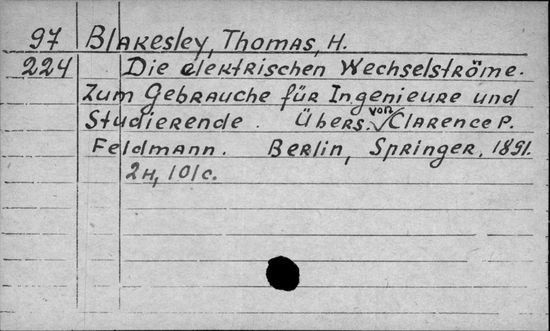 97 Blakesley, Thomas, H.
224 Die elektrischen Wechselströme.
Zum Gebrauche für Ingenieure und
Studierende. Übers. von Clarence P.
Feldmann. Berlin, Springer, 1891.
2н, 101c.